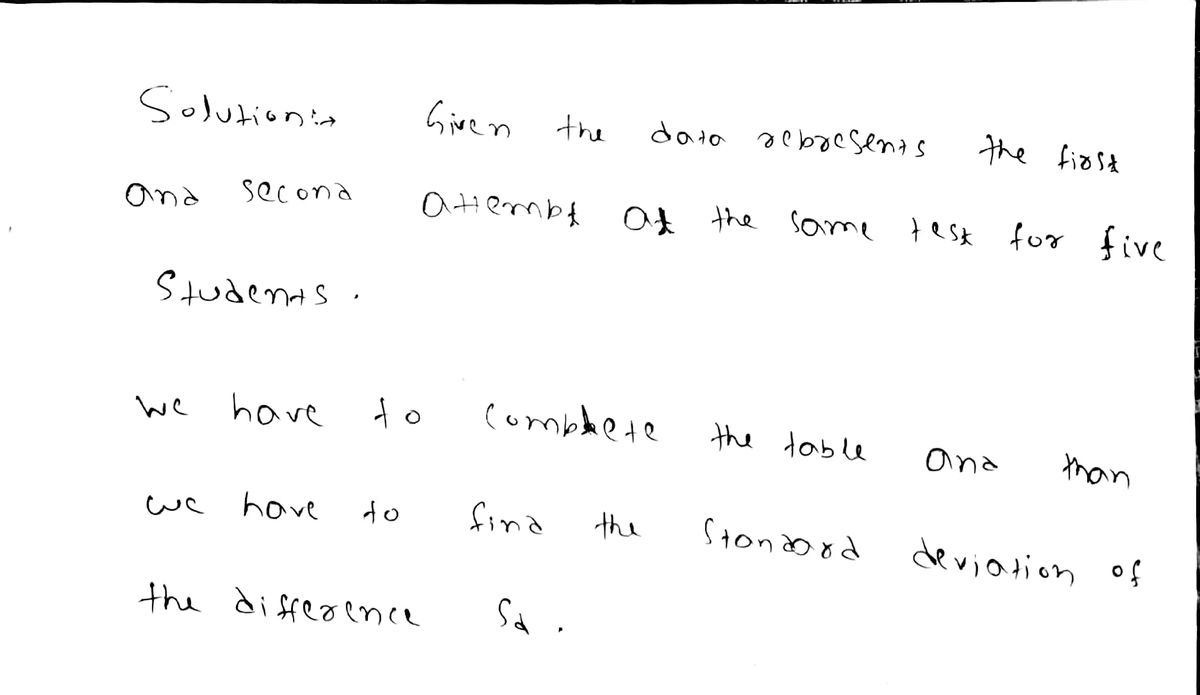 Solution:→ Given the data represents the first
and second attempt at the same test for five
students.
we have to complete the table and than
we have to find the standard deviation of
the difference Sd.